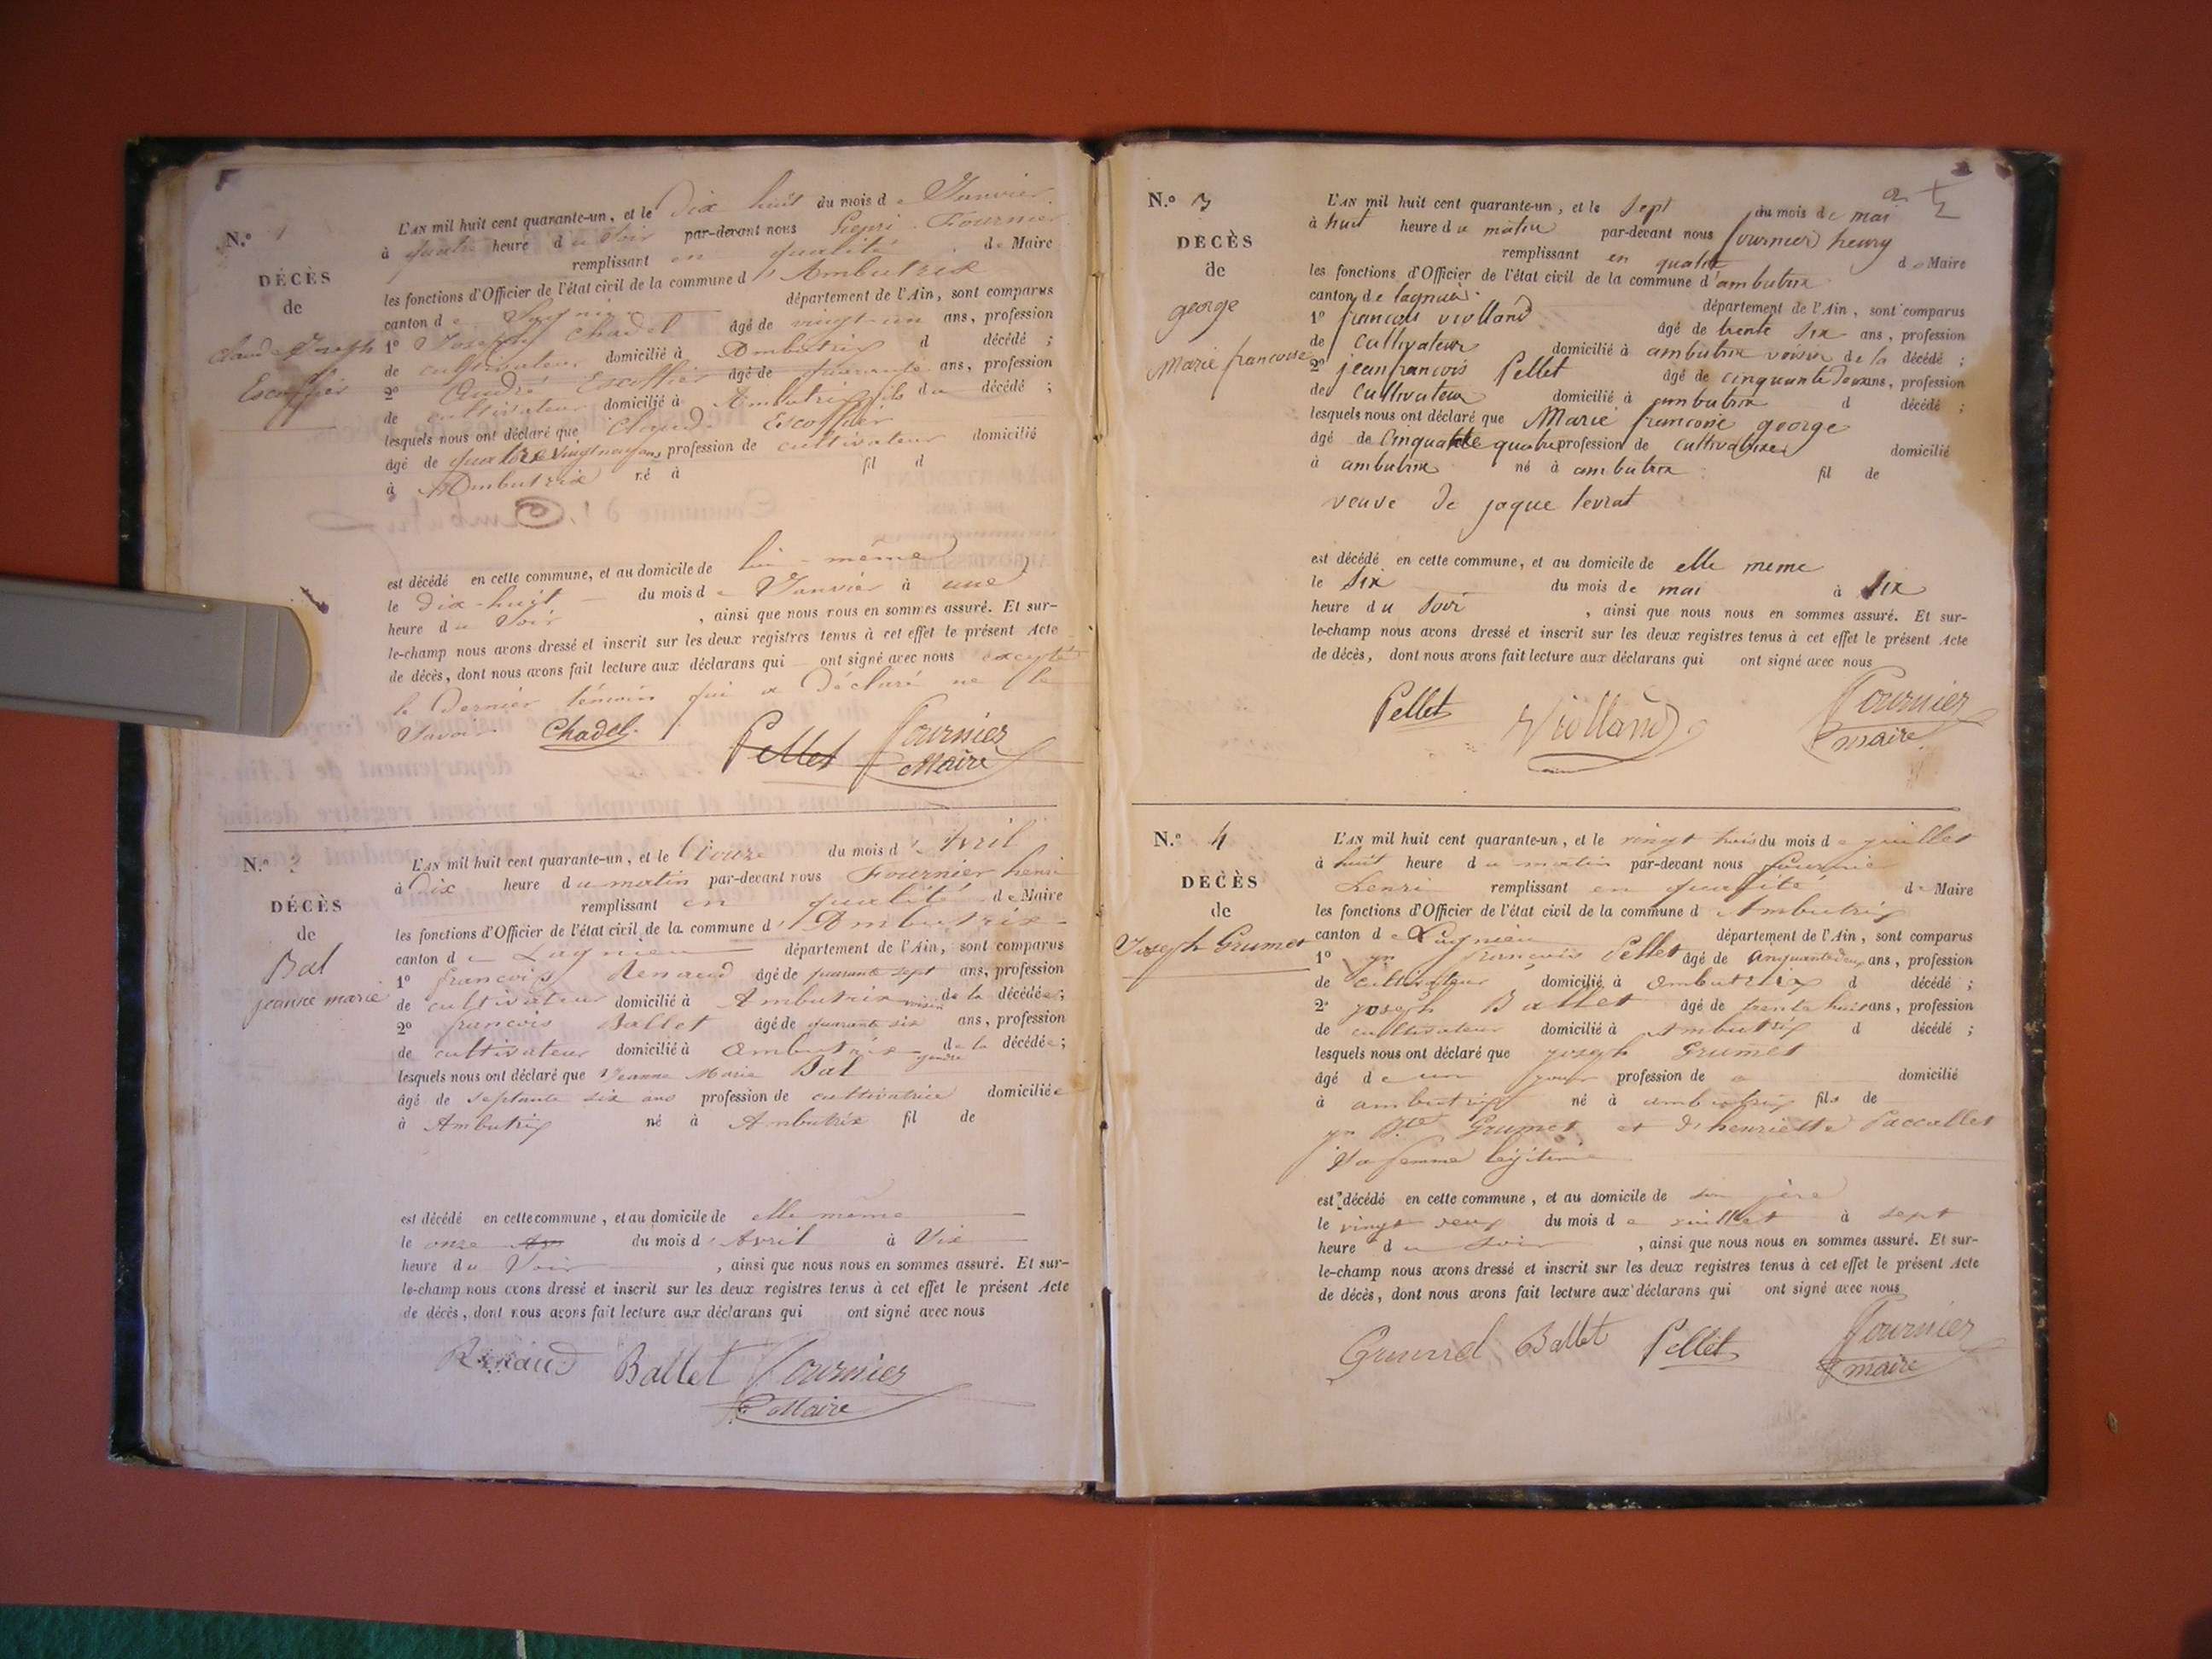 N.º 1
DÉCÈS
de
Claude Joseph
Escoffier
L'AN mil huit cent quarante-un, et le Dix huit du mois de Janvier
à quatre heure du Soir par-devant nous Henri Fournier
remplissant en qualité de Maire
les fonctions d'Officier de l'état civil de la commune d'Ambutrix
canton de Lagnieu département de l'Ain, sont comparus
1º Joseph Chadel âgé de vingt-un ans, profession
de cultivateur domicilié à Ambutrix d décédé ;
2º André Escoffier âgé de quarante ans, profession
de cultivateur domicilié à Ambutrix fils du décédé ;
lesquels nous ont déclaré que Claude Escoffier
âgé de quatre vingt neuf ans profession de cultivateur domicilié
à Ambutrix né à fil d
est décédé en cette commune, et au domicile de lui-même
le dix-huit du mois de Janvier à une
heure du Soir, ainsi que nous nous en sommes assuré. Et sur-
le-champ nous avons dressé et inscrit sur les deux registres tenus à cet effet le présent Acte
de décès, dont nous avons fait lecture aux déclarans qui ont signé avec nous excepté
le Dernier témoin qui a Déclaré ne le
Savoir. Chadel Pellet Fournier
Maire
N.º 2
DÉCÈS
de
Bal
jeanne marie
L'AN mil huit cent quarante-un, et le Douze du mois d'Avril
à Dix heure du matin par-devant nous Fournier henri
remplissant en qualité de Maire
les fonctions d'Officier de l'état civil de la commune d'Ambutrix
canton de Lagnieu département de l'Ain, sont comparus
1º francois Renaud âgé de quarante sept ans, profession
de cultivateur domicilié à Ambutrix voisin de la décédée ;
2º francois Ballet âgé de quarante six ans, profession
de cultivateur domicilié à Ambutrix gendre de la décédée ;
lesquels nous ont déclaré que Jeanne Marie Bal
âgé de septante six ans profession de cultivatrice domiciliée
à Ambutrix né à Ambutrix fil de
est décédé en cette commune, et au domicile de elle même
le onze du mois d'Avril à Dix
heure du Soir, ainsi que nous nous en sommes assuré. Et sur-
le-champ nous avons dressé et inscrit sur les deux registres tenus à cet effet le présent Acte
de décès, dont nous avons fait lecture aux déclarans qui ont signé avec nous
Renaud Ballet Fournier
Maire
2
N.º 3
DÉCÈS
de
george
Marie francoise
L'AN mil huit cent quarante-un, et le Sept du mois de mai
à huit heure du matin par-devant nous fournier henry
remplissant en qualité de Maire
les fonctions d'Officier de l'état civil de la commune d'ambutrix
canton de lagnieu département de l'Ain, sont comparus
1º francois violland âgé de trente six ans, profession
de Cultivateur domicilié à ambutrix voisin de la décédé ;
2º jeanfrancois Pellet âgé de cinquante deux ans, profession
de Cultivateur domicilié à ambutrix d décédé ;
lesquels nous ont déclaré que Marie francoise george
âgé de Cinquante quatre profession de cultivatrice domicilié
à ambutrix né à ambutrix fil de
veuve de jaque levrat
est décédé en cette commune, et au domicile de elle meme
le Six du mois de mai à Six
heure du Soir, ainsi que nous nous en sommes assuré. Et sur-
le-champ nous avons dressé et inscrit sur les deux registres tenus à cet effet le présent Acte
de décès, dont nous avons fait lecture aux déclarans qui ont signé avec nous
Pellet Violland Fournier
maire
N.º 4
DÉCÈS
de
Joseph Grumet
L'AN mil huit cent quarante-un, et le vingt trois du mois de juillet
à huit heure du matin par-devant nous fournier
henri remplissant en qualité de Maire
les fonctions d'Officier de l'état civil de la commune d Ambutrix
canton de Lagnieu département de l'Ain, sont comparus
1º jn françois Pellet âgé de cinquante deux ans, profession
de cultivateur domicilié à Ambutrix d décédé ;
2º joseph Ballet âgé de trente huit ans, profession
de cultivateur domicilié à Ambutrix d décédé ;
lesquels nous ont déclaré que joseph Grumet
âgé de un jour profession de domicilié
à ambutrix né à ambutrix fils de
jn Bte Grumet et d'henriette Paccallet
Sa femme légitime
est décédé en cette commune, et au domicile de son père
le vingt deux du mois de juillet à sept
heure du Soir, ainsi que nous nous en sommes assuré. Et sur-
le-champ nous avons dressé et inscrit sur les deux registres tenus à cet effet le présent Acte
de décès, dont nous avons fait lecture aux déclarans qui ont signé avec nous
Ballet Pellet Fournier
maire